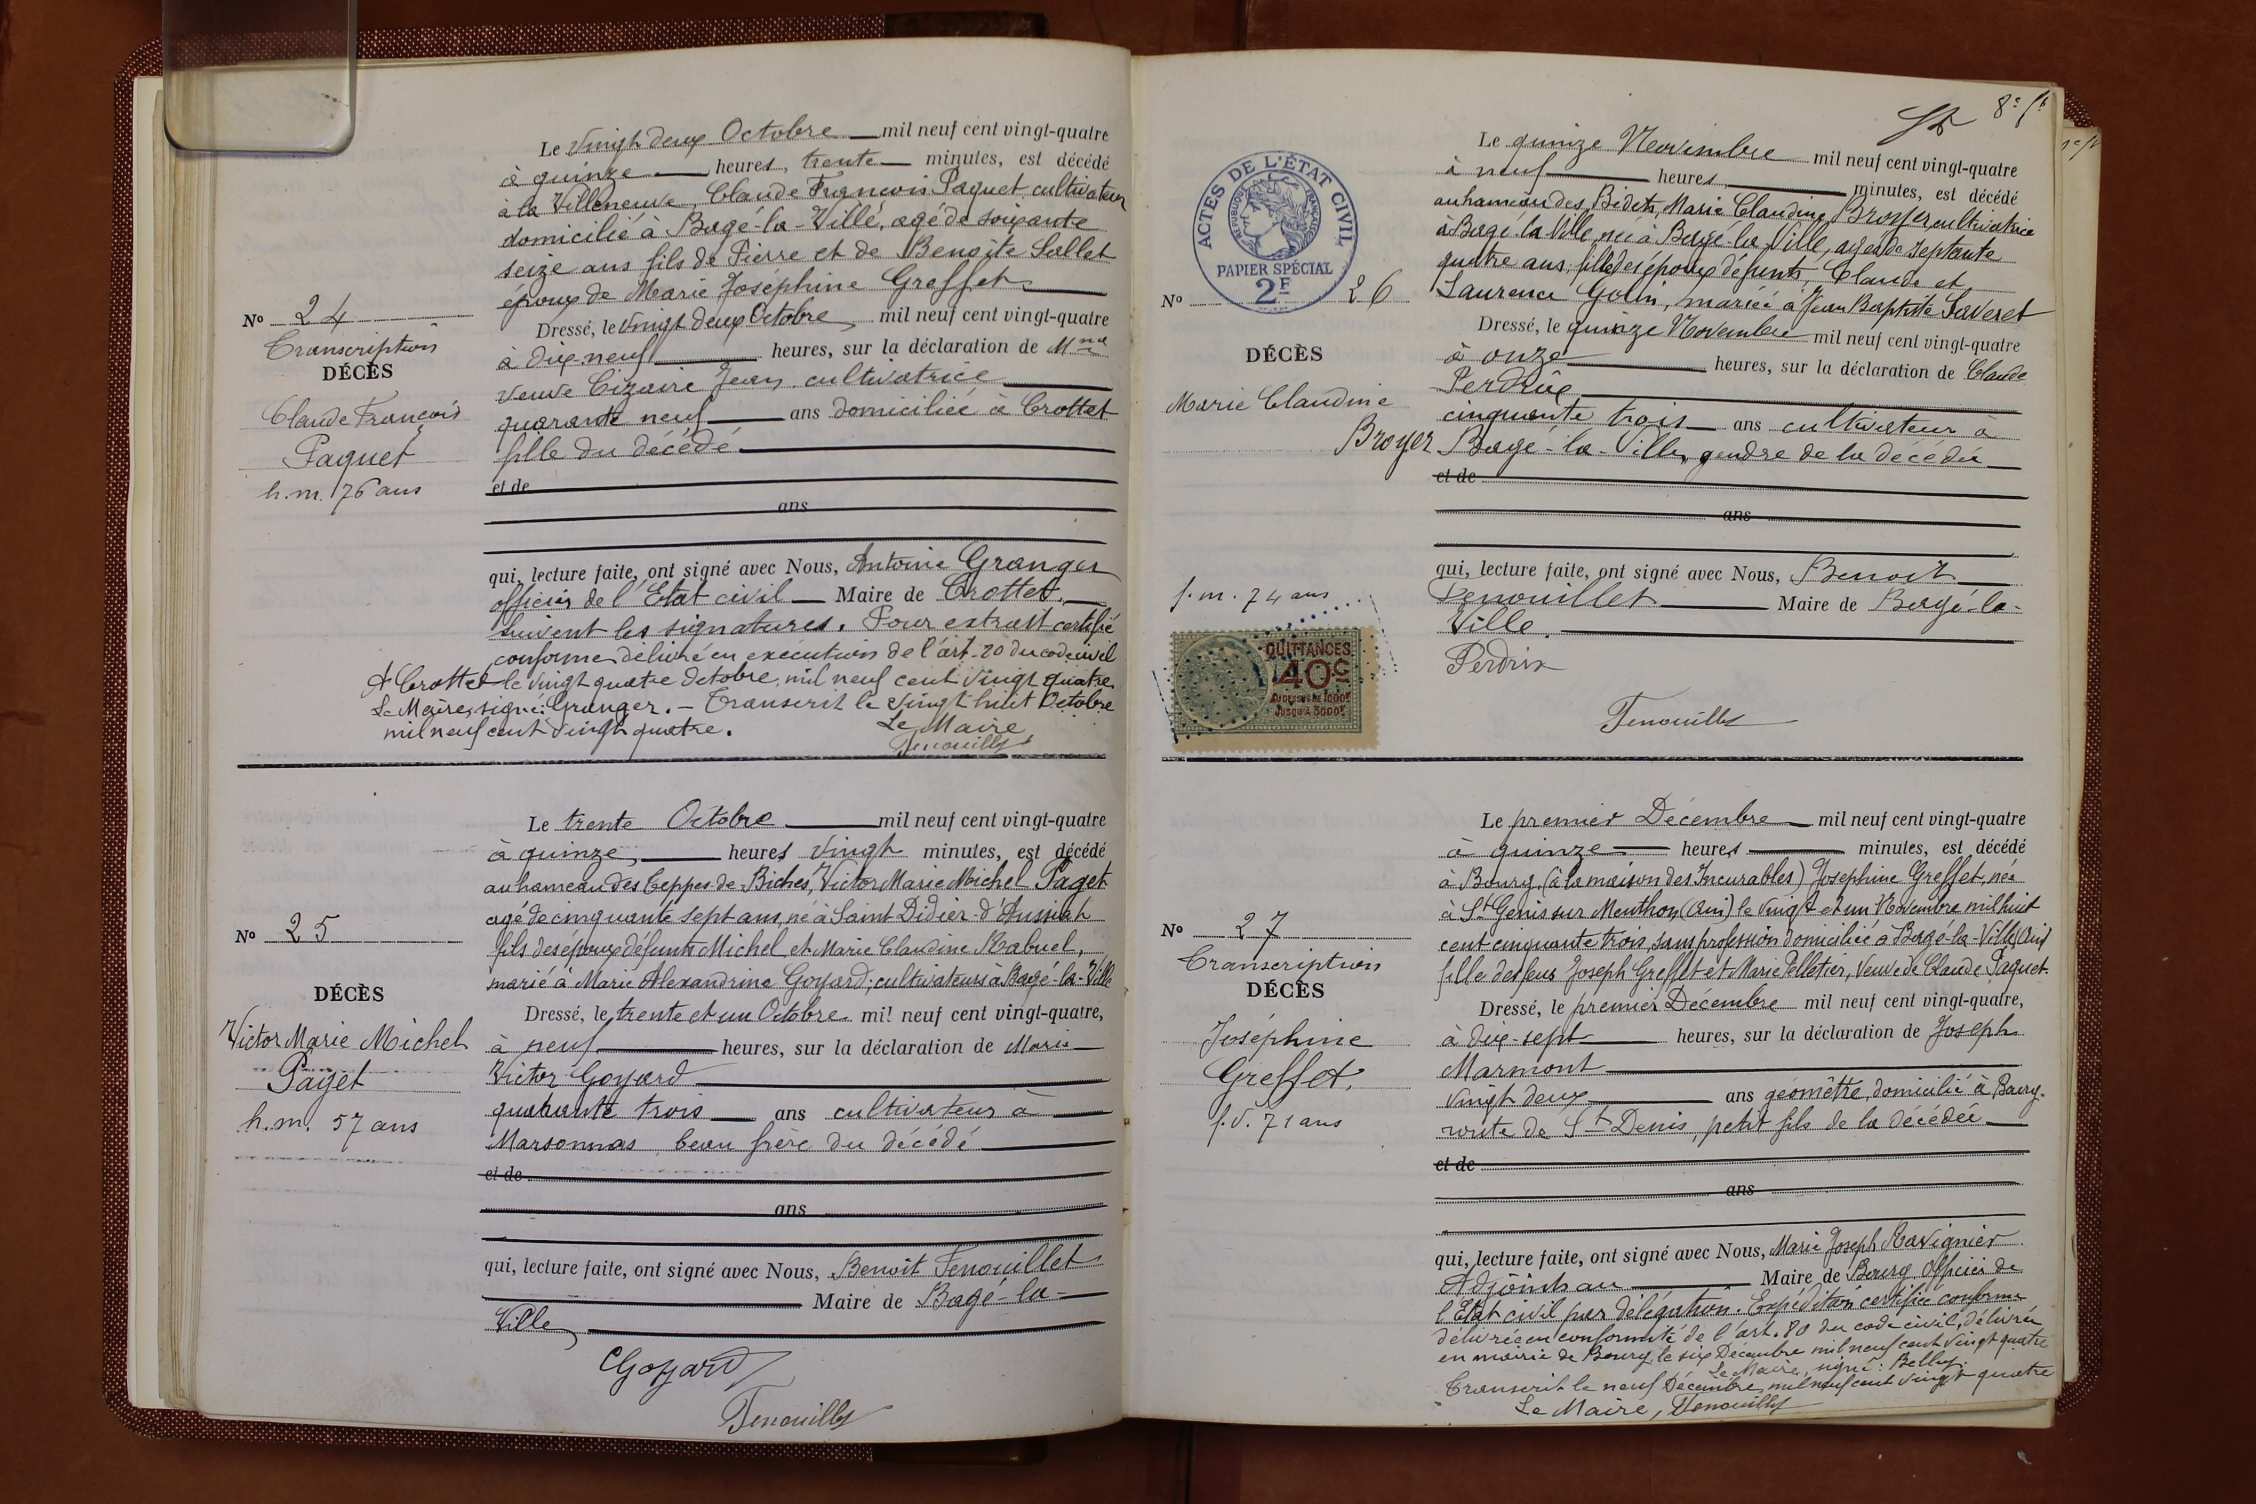 Le vingt deux Octobre mil neuf cent vingt-quatre
à quinze heures, trente minutes, est décédé
à la Villeneuve, Claude François Paquet cultivateur
domicilié à Bagé-la-Ville, agé de soixante
seize ans fils de Pierre et de Benoite Sallet
époux de Marie Joséphine Greffet
Dressé, le vingt deux Octobre mil neuf cent vingt-quatre
à dix-neuf heures, sur la déclaration de Mme
veuve Cizaire Jean cultivatrice
quarante neuf ans domiciliée à Crottet
fille du décédé
et de
ans
qui, lecture faite, ont signé avec Nous, Antoine Granger
officier de l'Etat civil Maire de Crottet,
suivent les signatures. Pour extrait certifié
conforme délivré en execution de l'art. 20 du code civil
A Crottet le vingt quatre octobre, mil neuf cent vingt quatre
Le Maire, signé: Granger. - Transcrit le vingt huit Octobre
mil neuf cent vingt quatre. Le Maire
Fenouillet
No 24
Transcription
DÉCÈS
Claude François
Paquet
h.m. 76 ans
Le trente Octobre mil neuf cent vingt-quatre
à quinze heures vingt minutes, est décédé
au hameau des Ceppes-de-Biches, Victor Marie Michel Paget
agé de cinquante sept ans, né à Saint Didier-d'Aussiat
fils des époux défunts Michel et Marie Claudine Rabuel,
marié à Marie Alexandrine Goyard; cultivateurs à Bagé-la-Ville
Dressé, le trente et un Octobre mil neuf cent vingt-quatre,
à neuf heures, sur la déclaration de Marie
Victor Goyard
quarante trois ans cultivateur à
Marsonnas beau frère du décédé
et de
ans
qui, lecture faite, ont signé avec Nous, Benoit Fenouillet
Maire de Bagé-la-
Ville
CGoyard
Fenouillet
No 25
DÉCÈS
Victor Marie Michel
Paget
h.m. 57 ans
8e ft
Le quinze Novembre mil neuf cent vingt-quatre
à neuf heures minutes, est décédé
au hameau des Bidets, Marie Claudine Broyer cultivatrice
à Bagé-la-Ville, née à Bagé-la-Ville, agée de septante
quatre ans, fille des époux défunts, Claude et
Laurence Golin, mariée à Jean Baptiste Saveret
Dressé, le quinze Novembre mil neuf cent vingt-quatre
à onze heures, sur la déclaration de Claude
Perdrix
cinquante trois ans cultivateur à
Bagé-la-Ville, gendre de la décédée
et de
ans
qui, lecture faite, ont signé avec Nous, Benoit
Fenouillet Maire de Bagé-la-
Ville.
Perdrix
Fenouillet
ACTES DE L'ÉTAT CIVIL
RÉPUBLIQUE FRANÇAISE
PAPIER SPÉCIAL
2F
No 26
DÉCÈS
Marie Claudine
Broyer
f.m. 74 ans
QUITTANCES
40c
AU DESSUS DE 1000F
JUSQU'À 3000F
Le premier Décembre mil neuf cent vingt-quatre
à quinze heures minutes, est décédé
à Bourg, (à la maison des Incurables) Josephine Greffet, née
à St Genis sur Menthon (Ain) le vingt et un Novembre mil huit
cent cinquante trois, sans profession domiciliée à Bagé-la-Ville, Ain
fille des feus Joseph Greffet et Marie Pelletier, veuve de Claude Paquet.
Dressé, le premier Décembre mil neuf cent vingt-quatre,
à dix-sept heures, sur la déclaration de Joseph
Marmont
vingt deux ans géomètre, domicilié à Bourg.
route de St Denis, petit fils de la décédée
et de
ans
qui, lecture faite, ont signé avec Nous, Marie Joseph Ravignier
Adjoint au Maire de Bourg officier de
l'Etat civil par délégation. Expédition certifiée conforme
délivrée en conformité de l'art. 80 du code civil, délivrée
en mairie de Bourg, le six Décembre mil neuf cent vingt quatre
Le Maire, signé: Belley.
Transcrit le neuf Décembre mil neuf cent vingt quatre
Le Maire, Fenouillet
No 27
Transcription
DÉCÈS
Joséphine
Greffet.
f.v. 71 ans